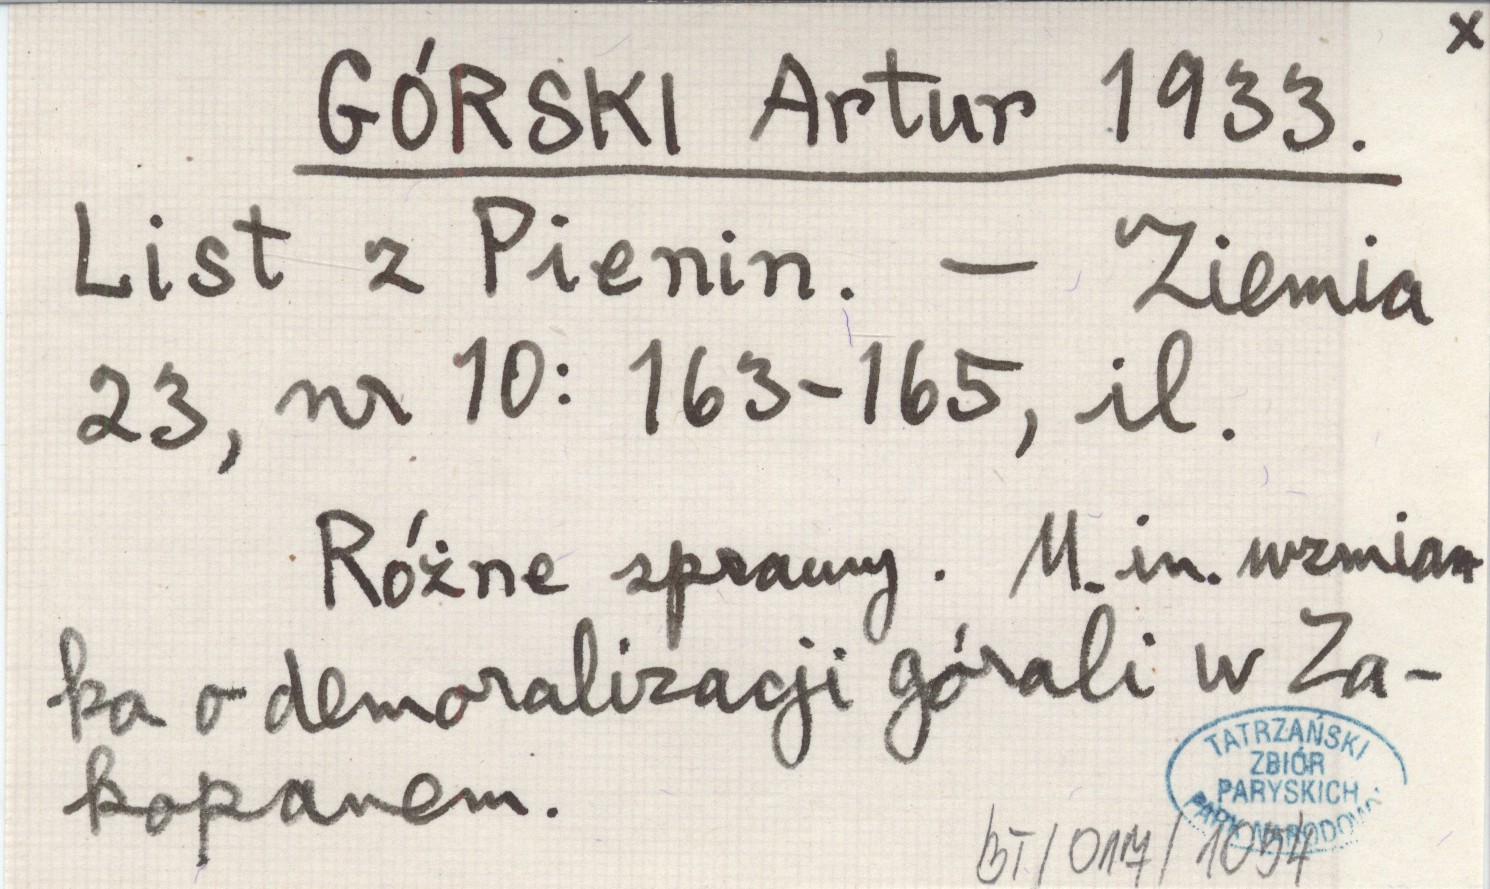 x
GÓRSKI Artur 1933.
List z Pienin. — Ziemia
23, nr 10: 163-165, il.
Różne sprawy. M. in. wzmian
ka o demoralizacji górali w Za-
kopanem.
TATRZAŃSKI
ZBIÓR
PARYSKICH
PARK NARODOWY
BT/017/1054